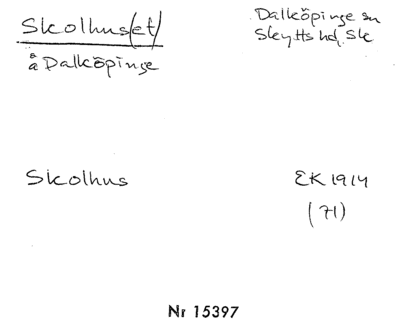 Skolhus(et)
å Dalköpinge
Dalköpinge sn
Skytts hd, Sk
Skolhus
EK 1914
(71)
Nr 15397